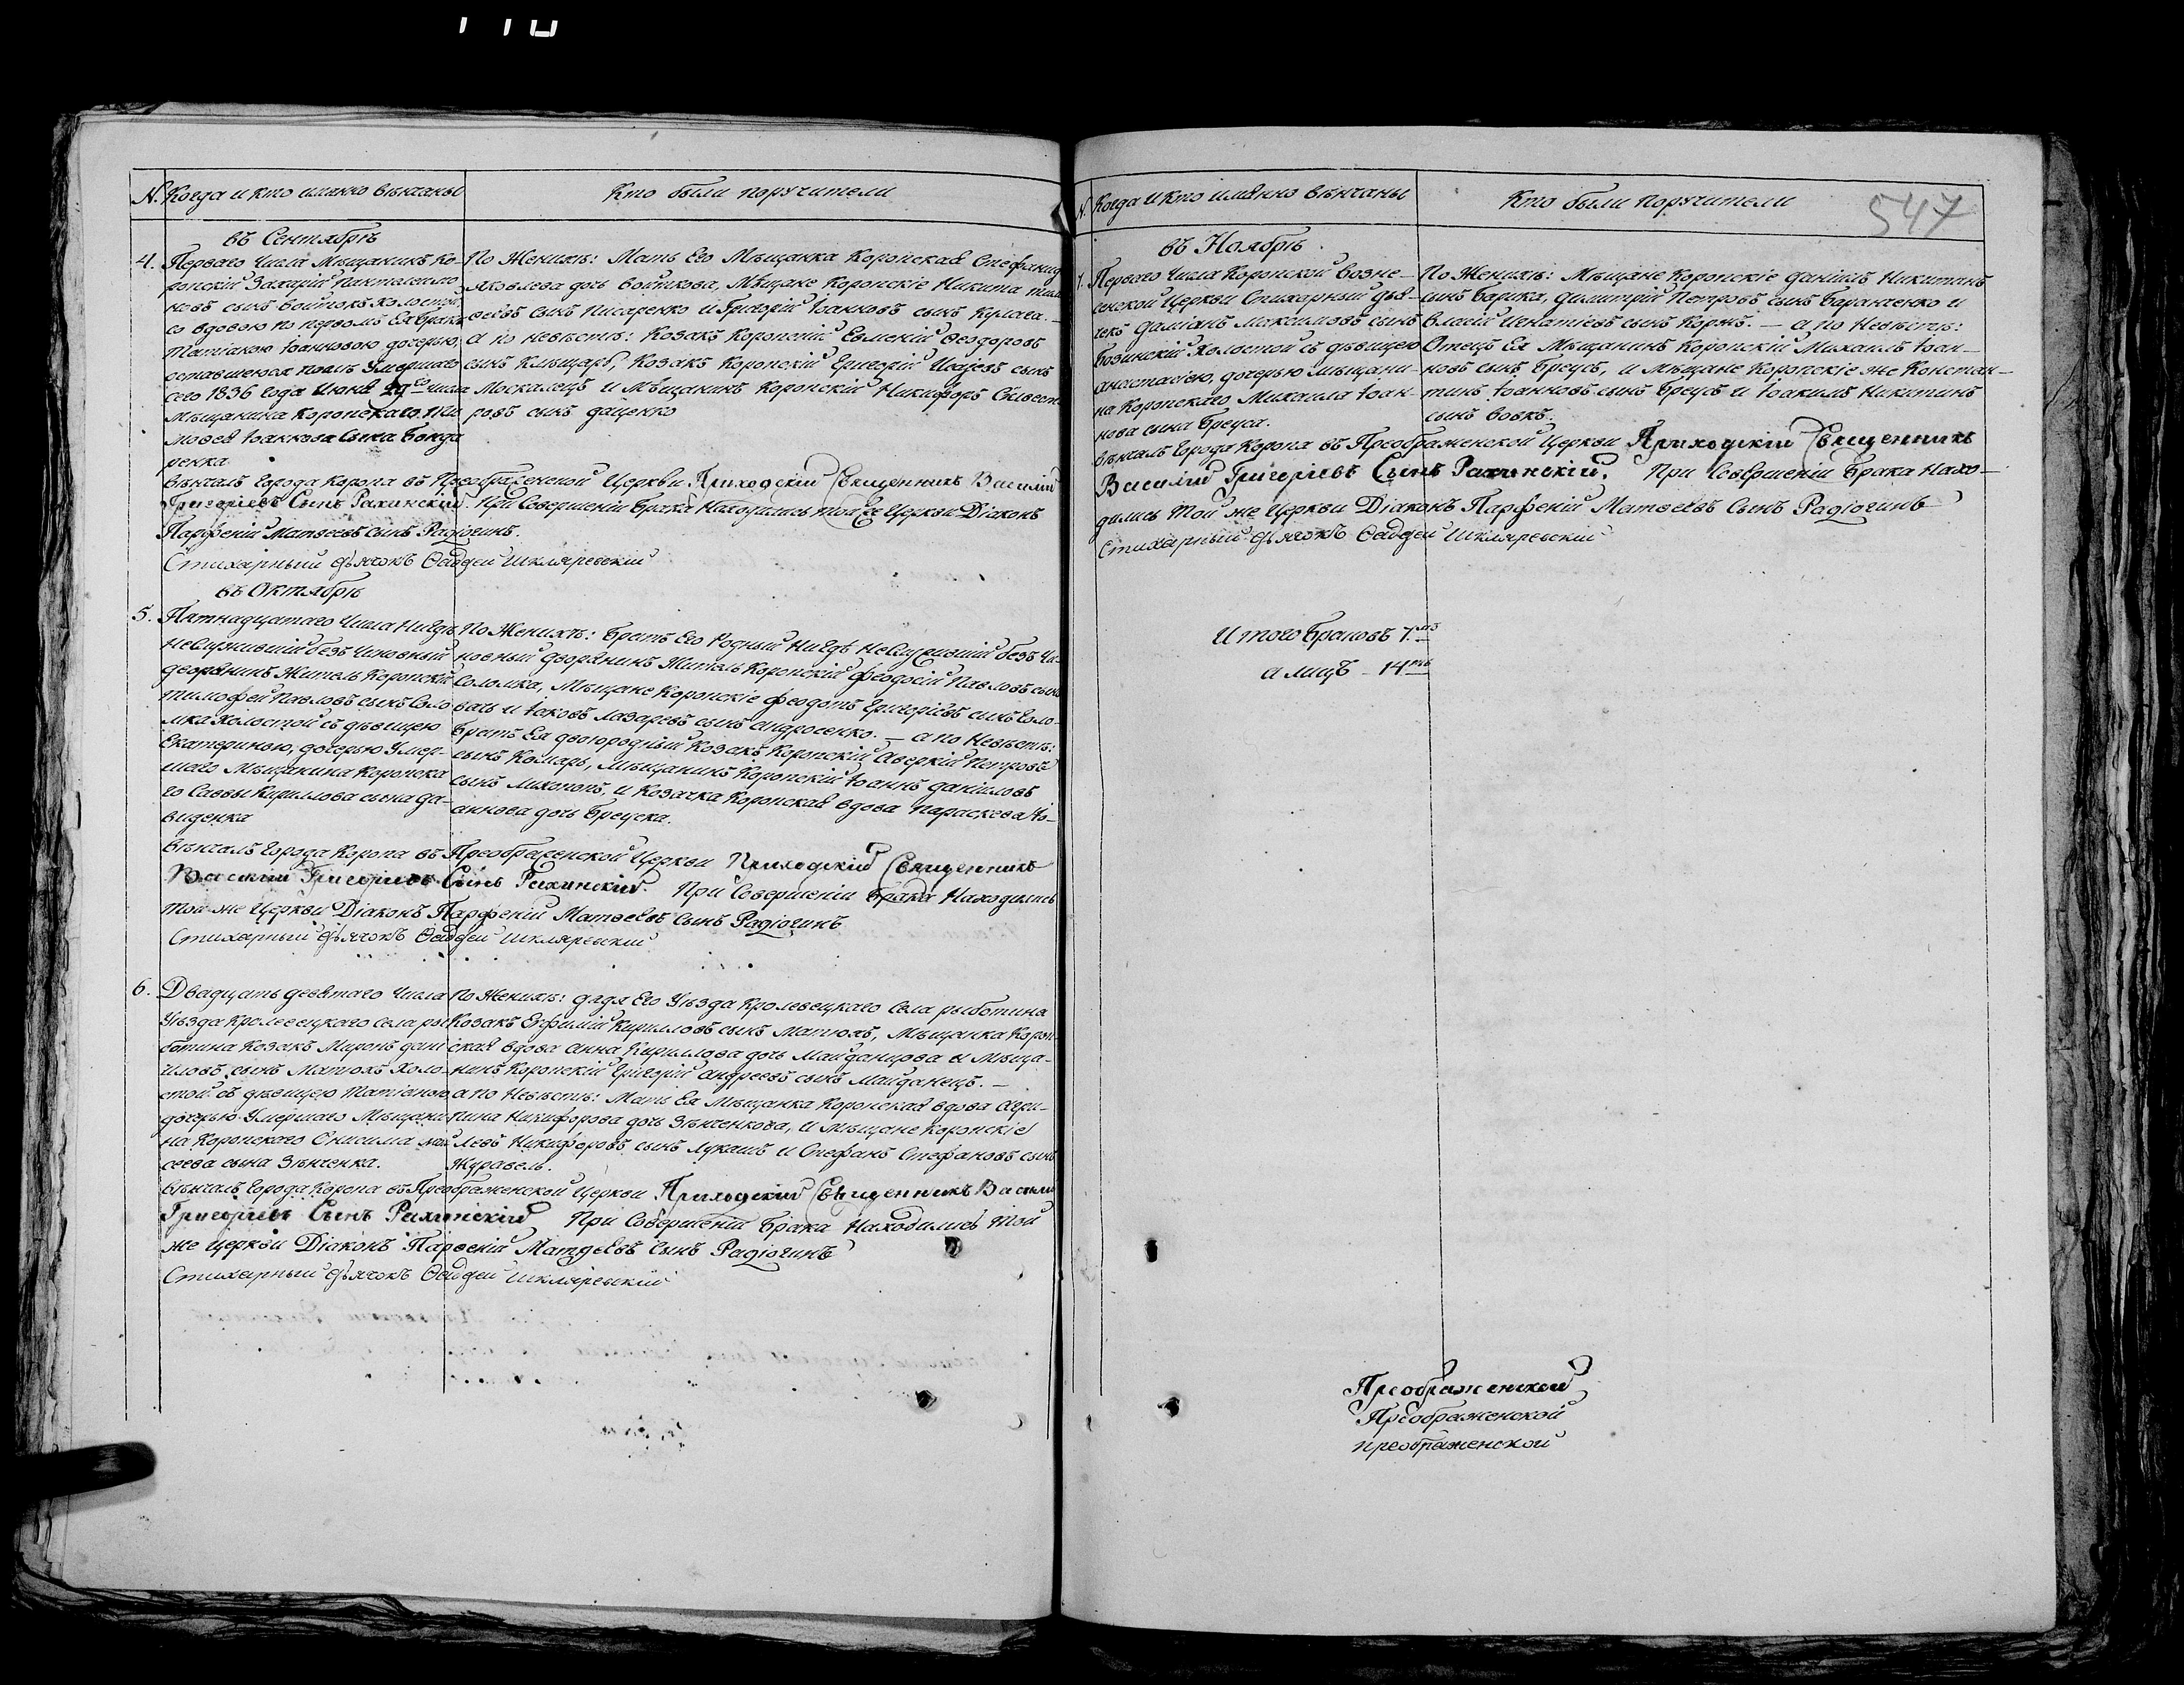 N. Когда и кто именно вѣнчаны
Кто были поручители
въ Сентябрѣ
4. Перваго Числа Мѣщанинъ Ко-
ропскій Захарій Пантелеимо
новъ сынъ Войтокъ холостый,
со вдовою по первомъ Ея бракѣ
Татіаною Іоанновою дочерью,
оставшеюся послѣ Умершаго
сего 1836 года Июня 29го числа
Мѣщанина Коропскаго Ти
мофея Іоаннова сына Бонда
ренка
По Женихѣ: Мать Его Мѣщанка Коропская Стефанид
Яковлева дочь Войткова, Мѣщане Коропскіе Никита
сынъ Писаренко и Григорій Іоанновъ сынъ Кулага. —
а по невѣстѣ: Козакъ Коропскій Евменій Феодоровъ
сынъ Клыцарь, Козакъ Коропскій Григорій Исаіевъ сынъ
Москалецъ и Мѣщанинъ Коропскій Никифоръ Сильвест
ровъ сынъ Даценко
Вѣнчалъ Города Коропа въ Преображенской Церкви Приходскій Священникъ Василій
Григоріевъ Сынъ Рахинскій. При Совершеніи Брака Находились той же Церкви Діаконъ
Парфеній Матѳеевъ сынъ Радіогинъ.
Стихарный Дьячокъ Ѳаддей Шкляревскій
въ Октябрѣ
5. Пятнадцатаго Числа Нигдѣ
неслужившій безъ Чиновный
дворянинъ Житель Коропскій
Тимофей Павловъ сынъ Соло
мка холостой съ дѣвицею
Екатериною, дочерью Умер-
шаго Мѣщанина Коропска
го Саввы Кириллова сына Да-
виденка
По Женихѣ: Братъ Его Родный Нигдѣ Неслужившій безъ Чи-
новный дворянинъ Житель Коропскій Феодосій Павловъ сынъ
Соломка, Мѣщане Коропскіе Феодотъ Григоріевъ сынъ Голо-
вачъ и Іаковъ Лазаревъ сынъ Андросенко. — а по Невѣстѣ:
Братъ Ея двоюродный Козакъ Коропскій Аверкій Петровъ
сынъ Комарь, Мѣщанинъ Коропскій Іоаннъ Даніиловъ
сынъ Лихопопъ, и Козачка Коропская вдова Параскева Іо-
аннова дочь Брецка.
Вѣнчалъ Города Коропа въ Преображенской Церкви Приходскій Священникъ
Василій Григоріевъ Сынъ Рахинскій. При Совершеніи Брака Находились
той же Церкви Діаконъ Парфеній Матѳеевъ Сынъ Радіогинъ
Стихарный Дьячокъ Ѳаддей Шкляревскій
6. Двадцать девятаго Числа
Уѣзда Кролевецкаго села ры
ботина Козакъ Миронъ Дані
иловъ сынъ Матюхъ Холо-
стой съ дѣвицею Татіаною
дочерью Умершаго Мѣщани
на Коропскаго Онисима Мои
сеева сына Зѣнченка.
По Женихѣ: дядя Его Уѣзда Кролевецкаго села рыботина
Козакъ Евфимій Кирилловъ сынъ Матюхъ, Мѣщанка Короп
ская вдова Анна Кириллова дочь Майданцова и Мѣща-
нинъ Коропскій Григорій Андреевъ сынъ Майданецъ. —
а по Невѣстѣ: Мать Ея Мѣщанка Коропская вдова Агри-
пина Никифорова дочь Зѣнченкова, и Мѣщане Коропскіе
Левъ Никифоровъ сынъ Лукашъ и Стефанъ Стефановъ сынъ
Журавель.
Вѣнчалъ Города Коропа въ Преображенской Церкви Приходскій Священникъ Василій
Григоріевъ Сынъ Рахинскій При Совершеніи Брака Находились той
же Церкви Діаконъ Парѳеній Матѳеевъ Сынъ Радіогинъ
Стихарный Дьячокъ Ѳаддей Шкляревскій
N. Когда и кто имянно вѣнчаны
Кто были поручители
547
въ Ноябрѣ.
7. Перваго Числа Коропской Возне-
сенской Церкви Стихарный дья-
чекъ Даміанъ Максимовъ сынъ
Бозинскій Холостой съ дѣвицею
Анастасіею, дочерью Мѣщани-
на Коропскаго Михаила Іоан-
нова сына Бреуса.
По Женихѣ: Мѣщане Коропскіе Даніилъ Никитинъ
сынъ Барика, Димитрій Петровъ сынъ Баранченко и
Власій Игнатіевъ сынъ Коржъ. — а по Невѣстѣ:
Отецъ Ея Мѣщанинъ Коропскій Михаилъ Іоан-
новъ сынъ Бреусъ, и Мѣщане Коропскіе же Констан-
тинъ Іоанновъ сынъ Бреусъ и Іоакимъ Никитинъ
сынъ Вовкъ.
Вѣнчалъ Города Коропа въ Преображенской Церкви Приходскій Священникъ
Василій Григоріевъ Сынъ Рахинскій. При Совершеніи Брака Нахо-
дились Той же Церкви Діаконъ Парфеній Матѳеевъ Сынъ Радіогинъ
Стихарный Дьячокъ Ѳаддей Шкляревскій
Итого Браковъ 7мь
а лицъ — 14ть
Преображенской
Преображенской
преображенской